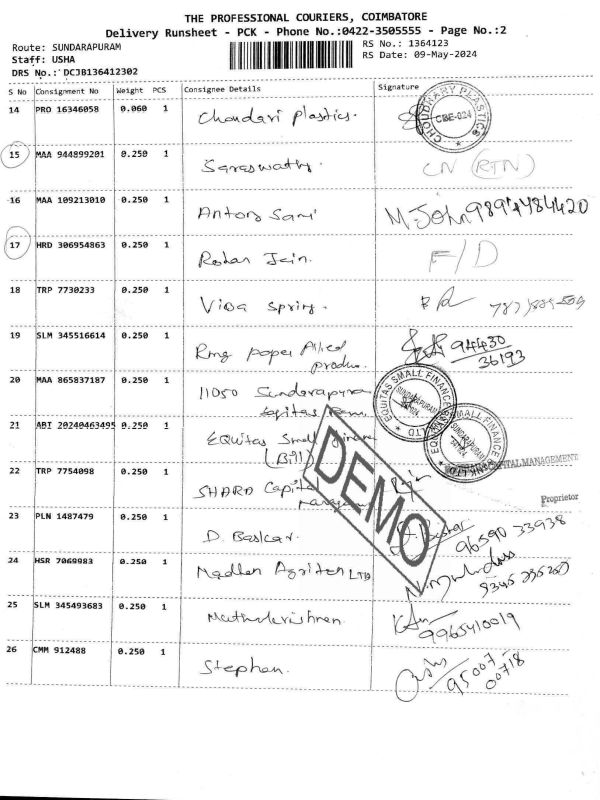 THE PROFESSIONAL COURIERS, COIMBATORE
Delivery Runsheet - PCK - Phone No.:0422-3505555 - Page No.:2
Route: SUNDARAPURAM
RS No.: 1364123
Staff: USHA
RS Date: 09-May-2024
DRS No.: DCJB136412302
S No Consignment No Weight PCS Consignee Details Signature
14 PRO 16346058 0.060 1 Chondari Plastics.
CHOUDHARY PLASTICS CBE-024
15 MAA 944899201 0.250 1 Saraswathy. CN (RTN)
16 MAA 109213010 0.250 1 Antony Sami M. John 9894484420
17 HRD 306954863 0.250 1 Rohan Jein. F/D
18 TRP 7730233 0.250 1 Viba Spring.
19 SLM 345516614 0.250 1 Rmg paper Allied 94430
produ. 36193
20 MAA 865837187 0.250 1 11050 Sundarapura
Eqitas
EQUITAS SMALL FINANCE LTD SUNDARAPURAM
21 ABI 20240463495 0.250 1 EQuitas Small
(Bill)
EQUITAS SMALL FINANCE BANK LTD SUNDARAPURAM
CAPITAL MANAGEMENT
22 TRP 7754098 0.250 1 SHARD Capital
Proprietor
23 PLN 1487479 0.250 1 D. Baskar. 96590 33938
24 HSR 7069983 0.250 1 Madhan Agritech LTD
25 SLM 345493683 0.250 1 Muthukrishnan. 9965410019
26 CMM 912488 0.250 1 Stephan. 95007
00718
DEMO